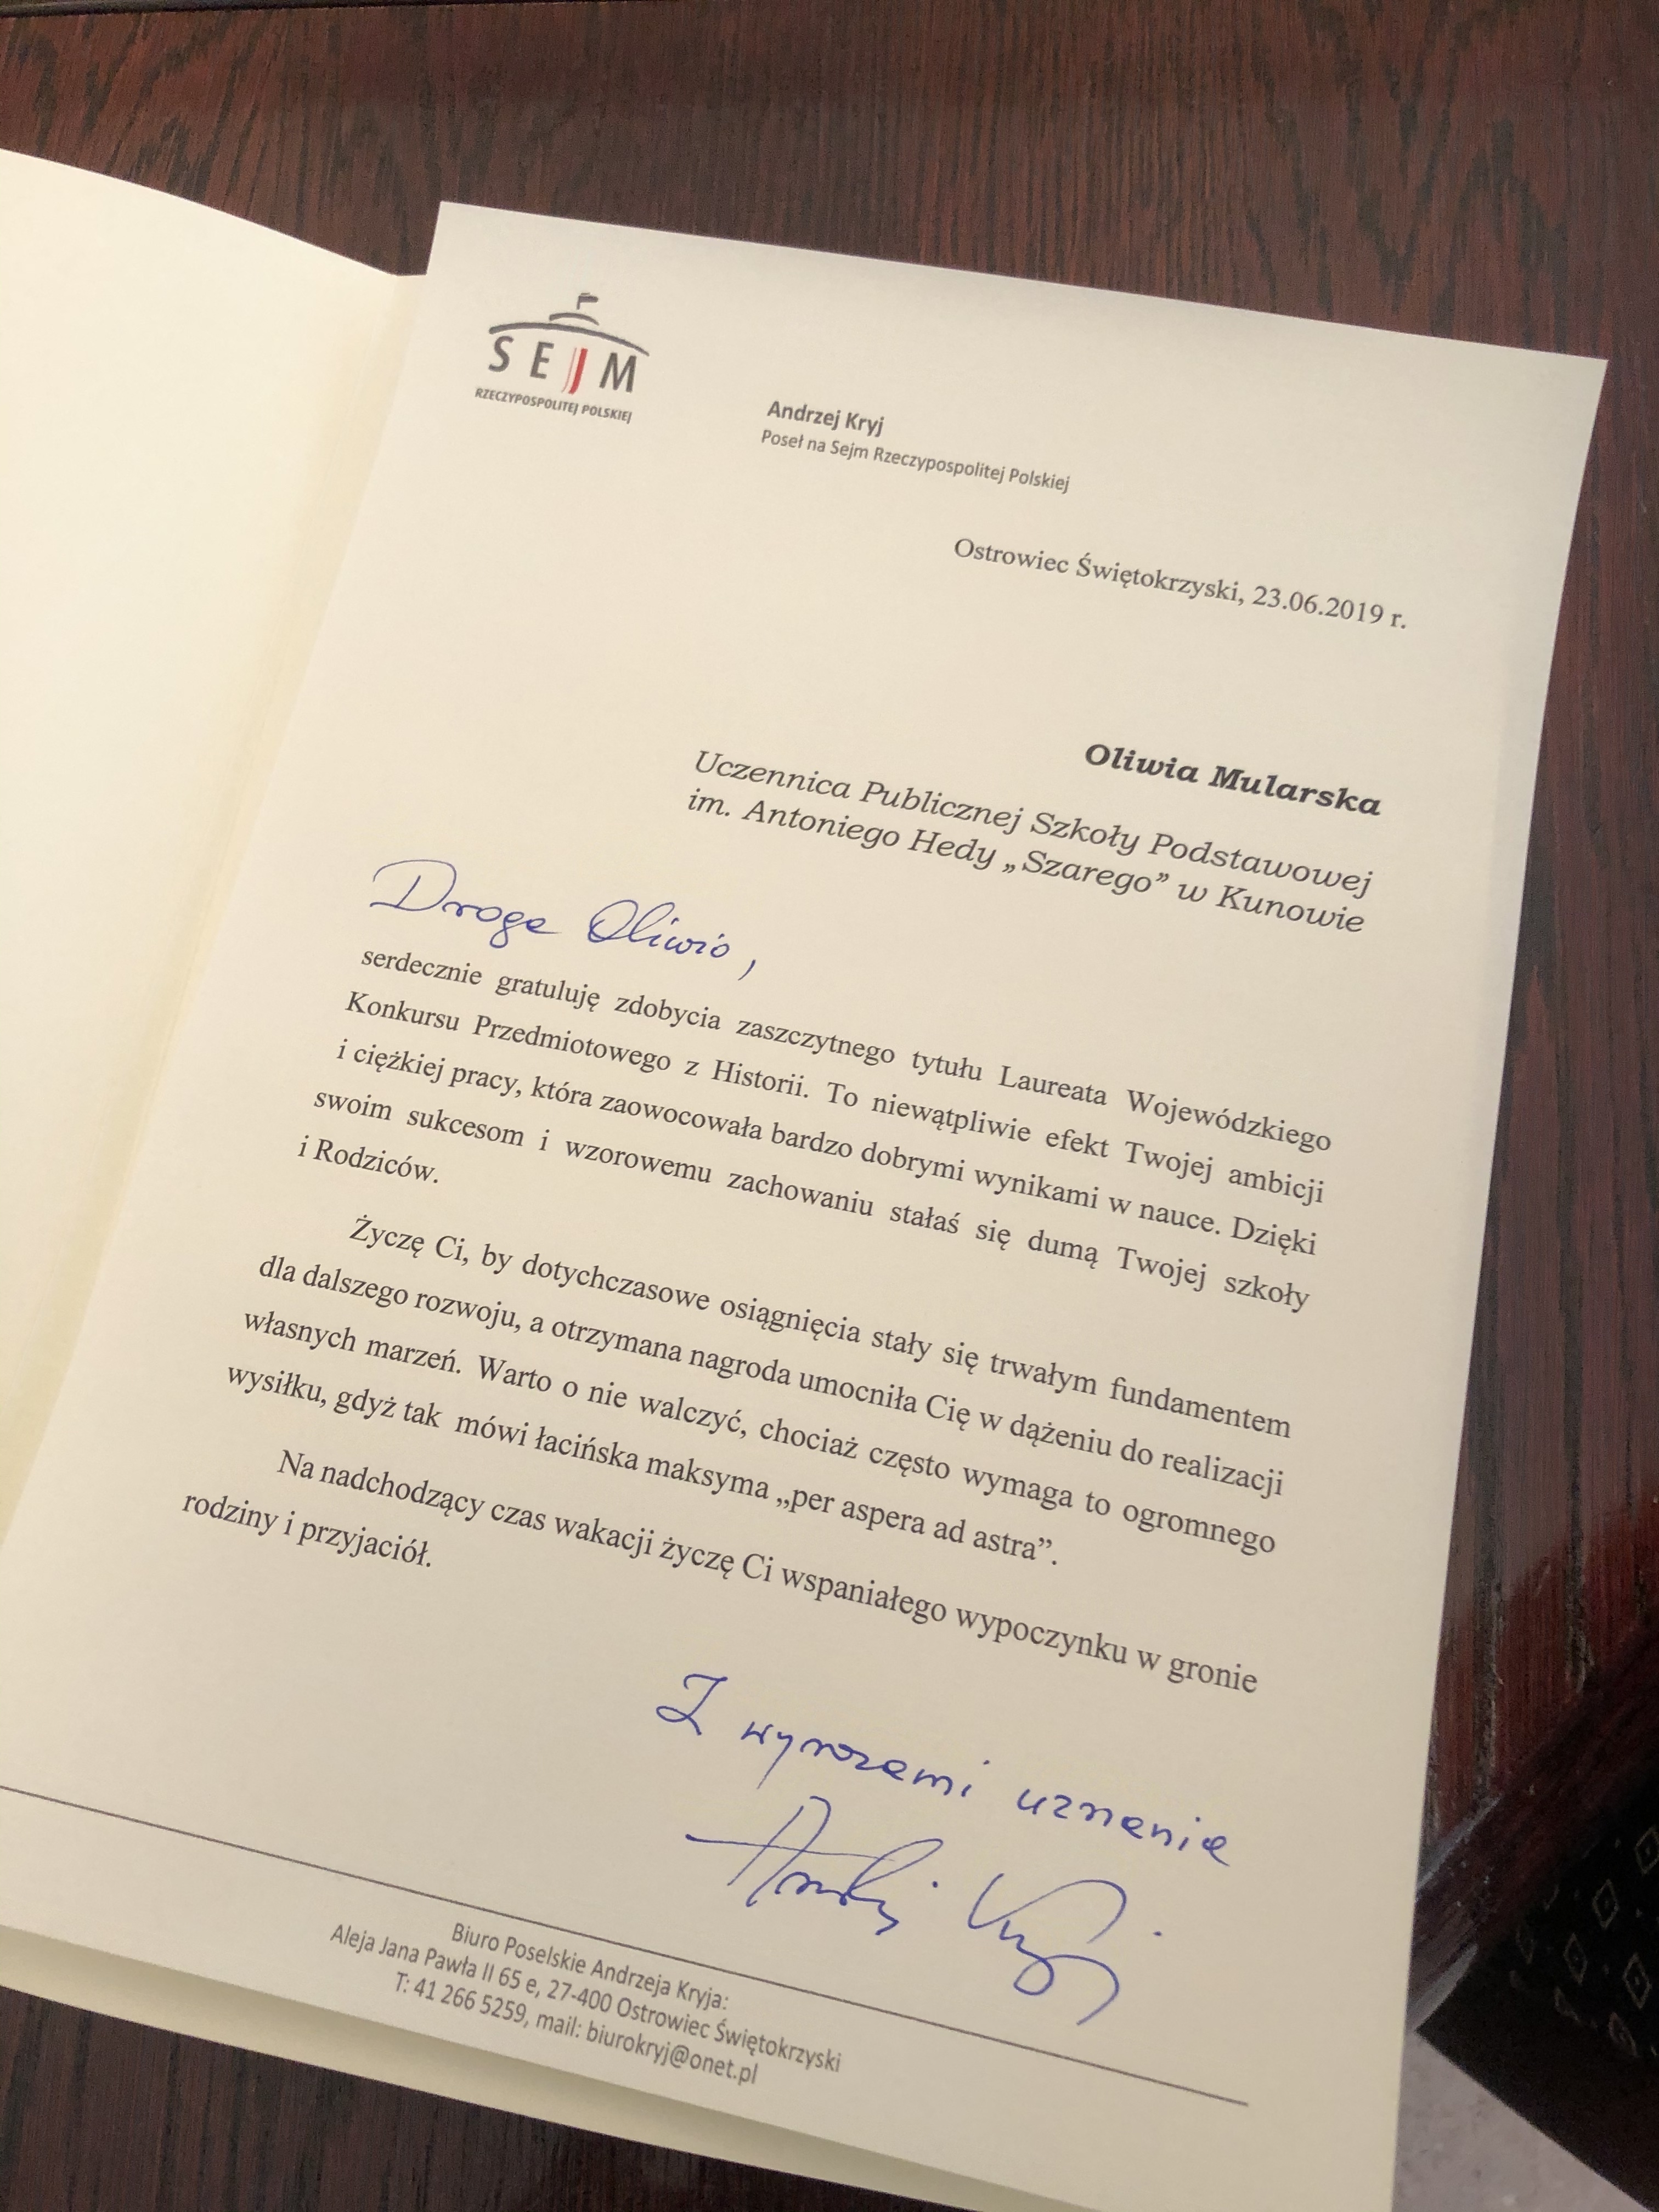 SEJM
RZECZYPOSPOLITEJ POLSKIEJ
Andrzej Kryj
Poseł na Sejm Rzeczypospolitej Polskiej
Ostrowiec Świętokrzyski, 23.06.2019 r.
Oliwia Mularska
Uczennica Publicznej Szkoły Podstawowej
im. Antoniego Hedy „Szarego” w Kunowie
Droga Oliwio,
serdecznie gratuluję zdobycia zaszczytnego tytułu Laureata Wojewódzkiego
Konkursu Przedmiotowego z Historii. To niewątpliwie efekt Twojej ambicji
i ciężkiej pracy, która zaowocowała bardzo dobrymi wynikami w nauce. Dzięki
swoim sukcesom i wzorowemu zachowaniu stałaś się dumą Twojej szkoły
i Rodziców.
Życzę Ci, by dotychczasowe osiągnięcia stały się trwałym fundamentem
dla dalszego rozwoju, a otrzymana nagroda umocniła Cię w dążeniu do realizacji
własnych marzeń. Warto o nie walczyć, chociaż często wymaga to ogromnego
wysiłku, gdyż tak mówi łacińska maksyma „per aspera ad astra”.
Na nadchodzący czas wakacji życzę Ci wspaniałego wypoczynku w gronie
rodziny i przyjaciół.
Z wyrazami uznania
Andrzej Kryj
Biuro Poselskie Andrzeja Kryja:
Aleja Jana Pawła II 65 e, 27-400 Ostrowiec Świętokrzyski
T: 41 266 5259, mail: biurokryj@onet.pl